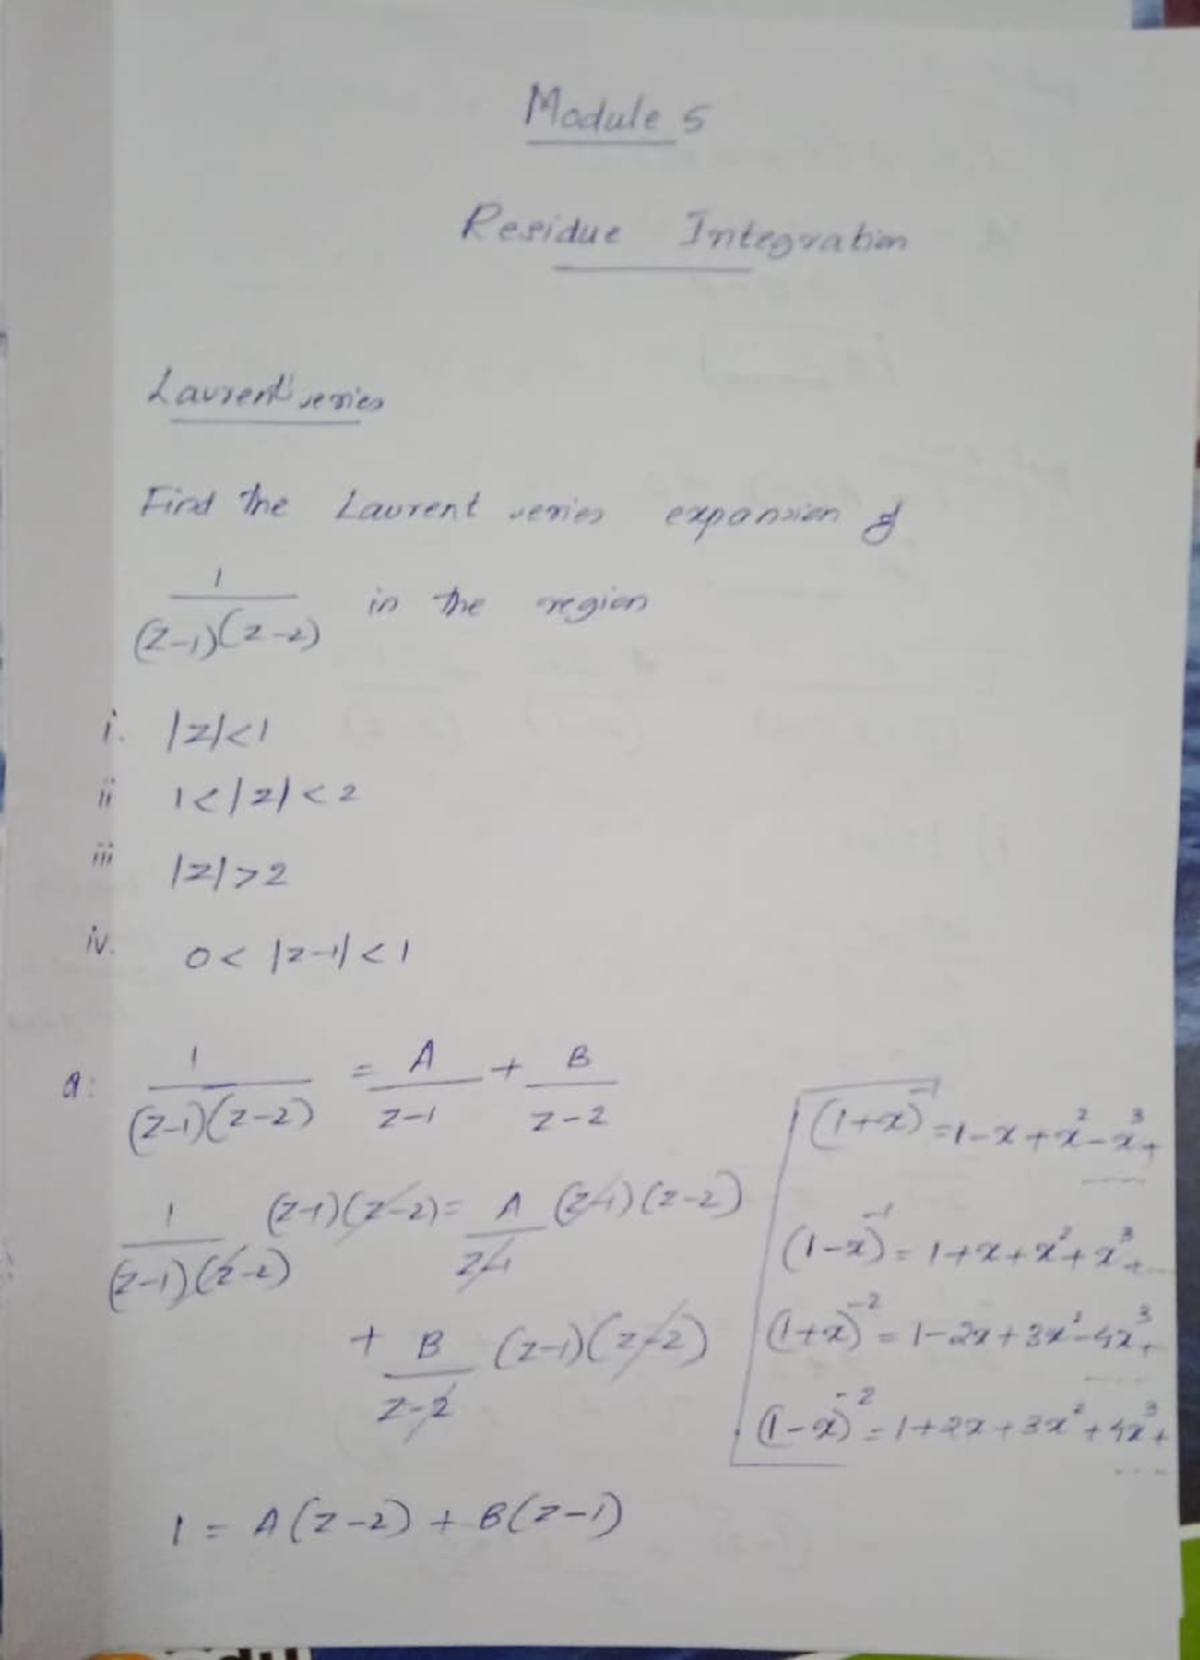 Module 5
Residue Integration
Laurent series
Find the Laurent series expansion of
1/((z-1)(z-2)) in the region
i. |z|<1
ii 1<|z|<2
iii |z|>2
iv. 0< |z-1|<1
a: 1/((z-1)(z-2)) = A/(z-1) + B/(z-2)
1/((z-1)(z-2)) (z-1)(z-2) = A/(z-1) (z-1)(z-2)
+ B/(z-2) (z-1)(z-2)
1 = A(z-2) + B(z-1)
(1+x)⁻¹ = 1-x+x²-x³+ ....
(1-x)⁻¹ = 1+x+x²+x³+...
(1+x)⁻² = 1-2x+3x²-4x³+ ....
(1-x)⁻² = 1+2x+3x²+4x³+ ...